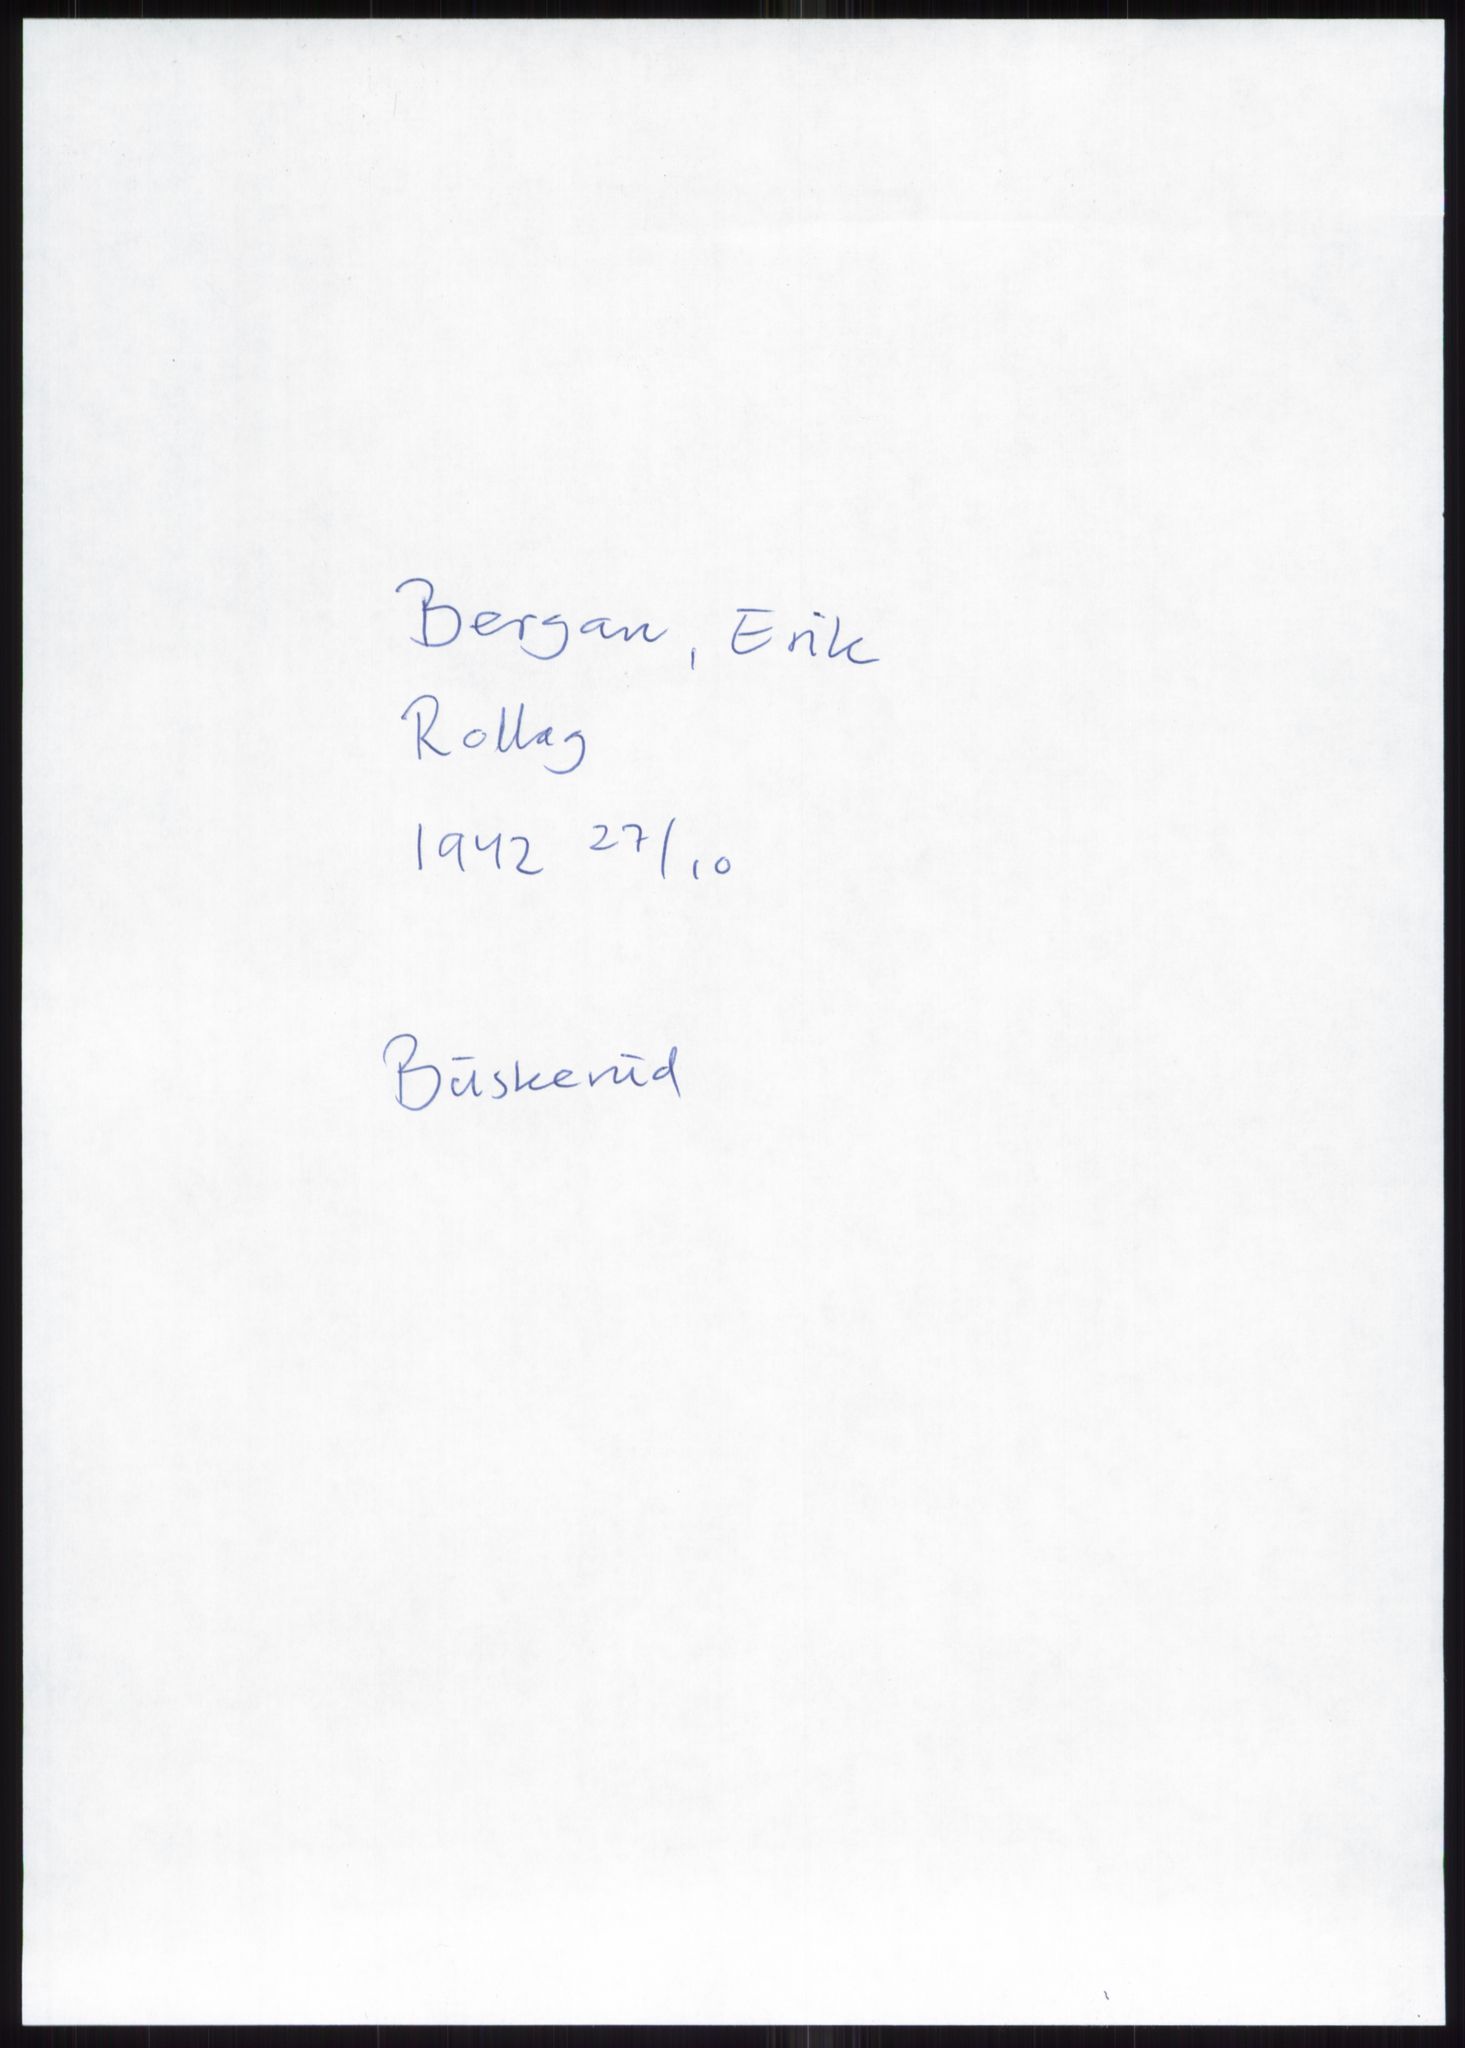 Bergan, Erik
Rollag
1942 27/10
Buskerud